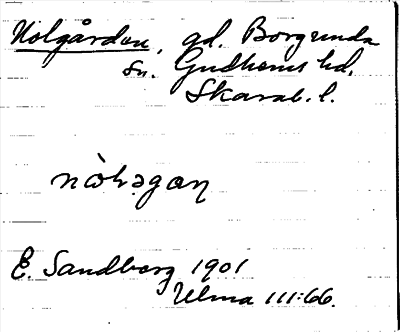 Nolgården, gd. Borgunda
sn. Gudhems hd.
Skarab. l.
E. Sandberg 1901
Ulma 111:66.